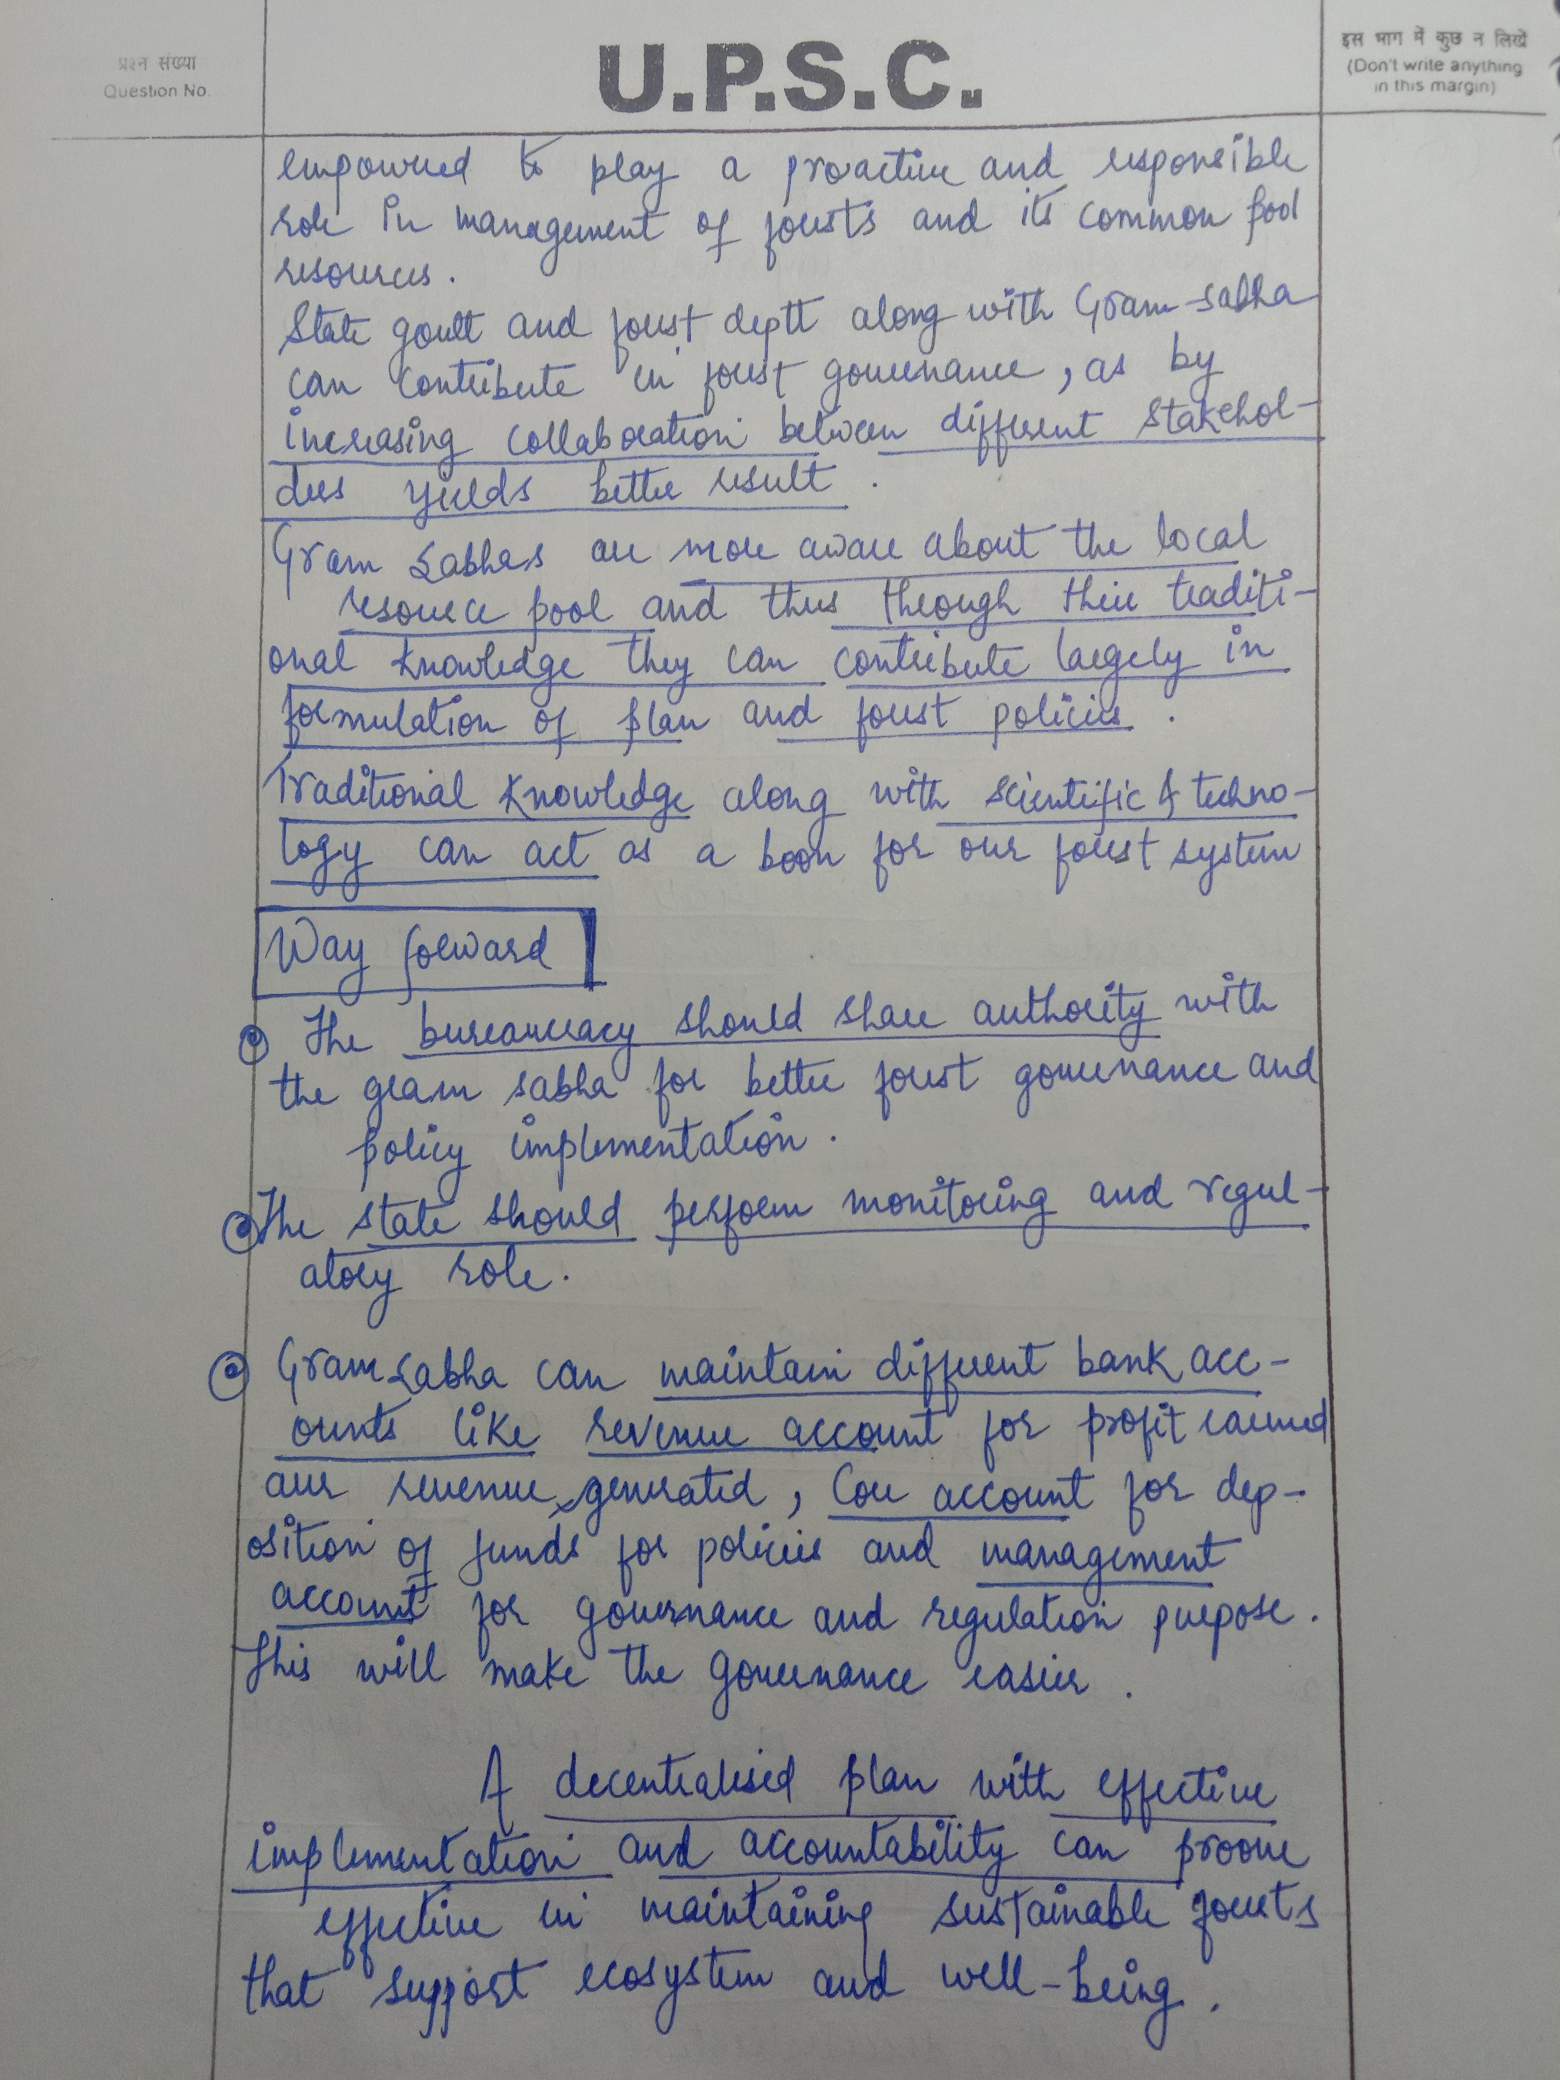 प्रश्न संख्या
Question No.
U.P.S.C.
इस भाग में कुछ न लिखें
(Don't write anything
in this margin)
empowred to play a proactive and responsible
role in management of forests and its common pool
resources.
State govt and forest deptt along with Gram-sabha
can contribute in forest governance, as by
increasing collaboration between different stakehol-
ders yields better result.
Gram sabhas are more aware about the local
resource pool and thus through their traditi-
onal knowledge they can contribute largely in
formulation of plan and forest policies.
Traditional knowledge along with scientific & techno-
logy can act as a boon for our forest system
Way forward
The bureaucracy should share authority with
the gram sabha for better forest governance and
policy implementation.
The state should perform monitoring and regul-
atory role.
Gram sabha can maintain different bank acc-
ounts like revenue account for profit earned
revenue generated, Core account for dep-
osition of funds for policies and management
account for governance and regulation purpose.
This will make the governance easier.
A decentralised plan with effective
implementation and accountability can proove
effective in maintaining sustainable forests
that support ecosystem and well-being.